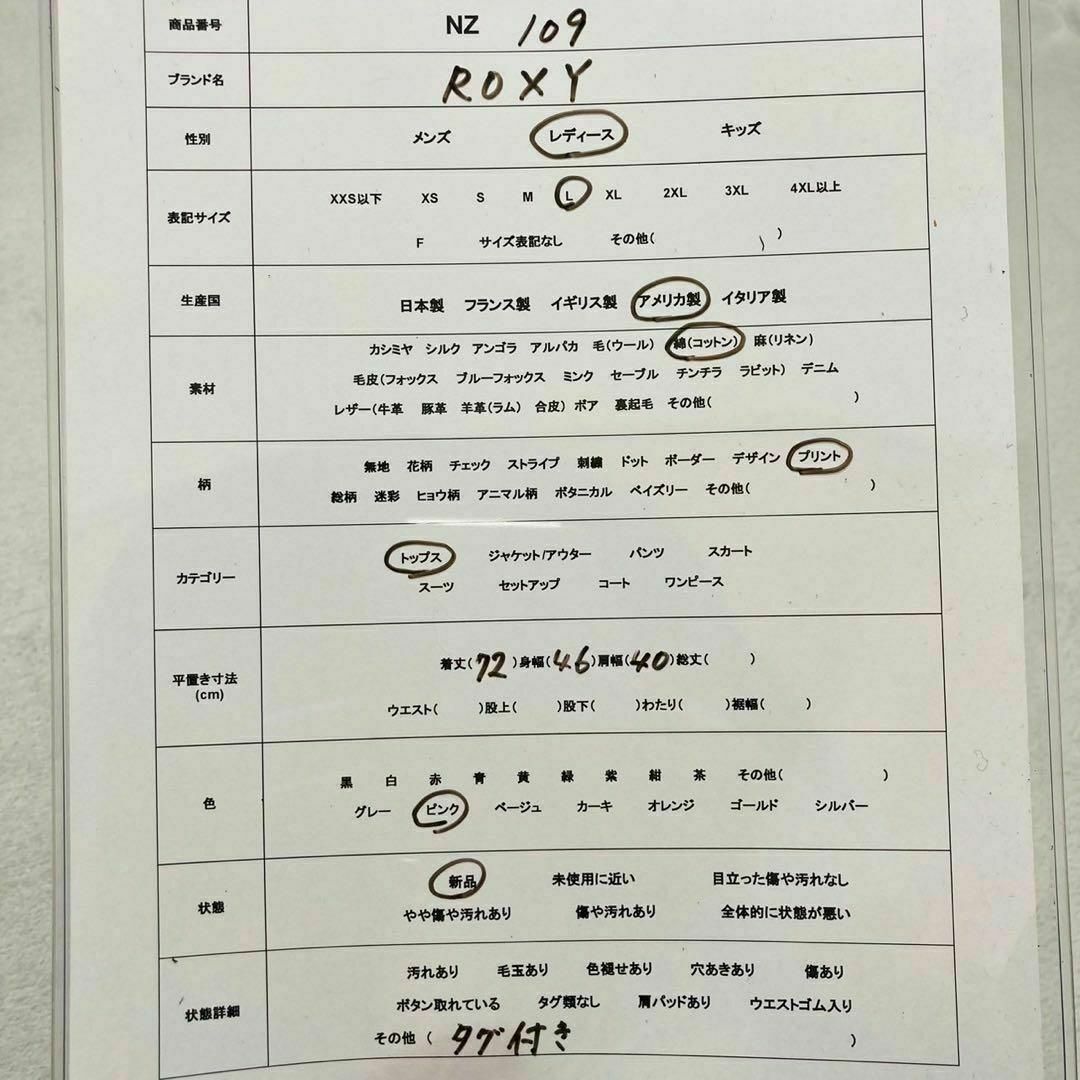 商品番号 NZ 109
ブランド名 ROXY
性別 メンズ レディース キッズ
表記サイズ XXS以下 XS S M L XL 2XL 3XL 4XL以上
F サイズ表記なし その他( )
生産国 日本製 フランス製 イギリス製 アメリカ製 イタリア製
素材 カシミヤ シルク アンゴラ アルパカ 毛(ウール) 綿(コットン) 麻(リネン)
毛皮(フォックス ブルーフォックス ミンク セーブル チンチラ ラビット) デニム
レザー(牛革 豚革 羊革(ラム) 合皮) ボア 裏起毛 その他( )
柄 無地 花柄 チェック ストライプ 刺繍 ドット ボーダー デザイン プリント
総柄 迷彩 ヒョウ柄 アニマル柄 ボタニカル ペイズリー その他( )
カテゴリー トップス ジャケット/アウター パンツ スカート
スーツ セットアップ コート ワンピース
平置き寸法 (cm) 着丈(72)身幅(46)肩幅(40)総丈( )
ウエスト( )股上( )股下( )わたり( )裾幅( )
色 黒 白 赤 青 黄 緑 紫 紺 茶 その他( )
グレー ピンク ベージュ カーキ オレンジ ゴールド シルバー
状態 新品 未使用に近い 目立った傷や汚れなし
やや傷や汚れあり 傷や汚れあり 全体的に状態が悪い
状態詳細 汚れあり 毛玉あり 色褪せあり 穴あきあり 傷あり
ボタン取れている タグ類なし 肩パッドあり ウエストゴム入り
その他 ( タグ付き )